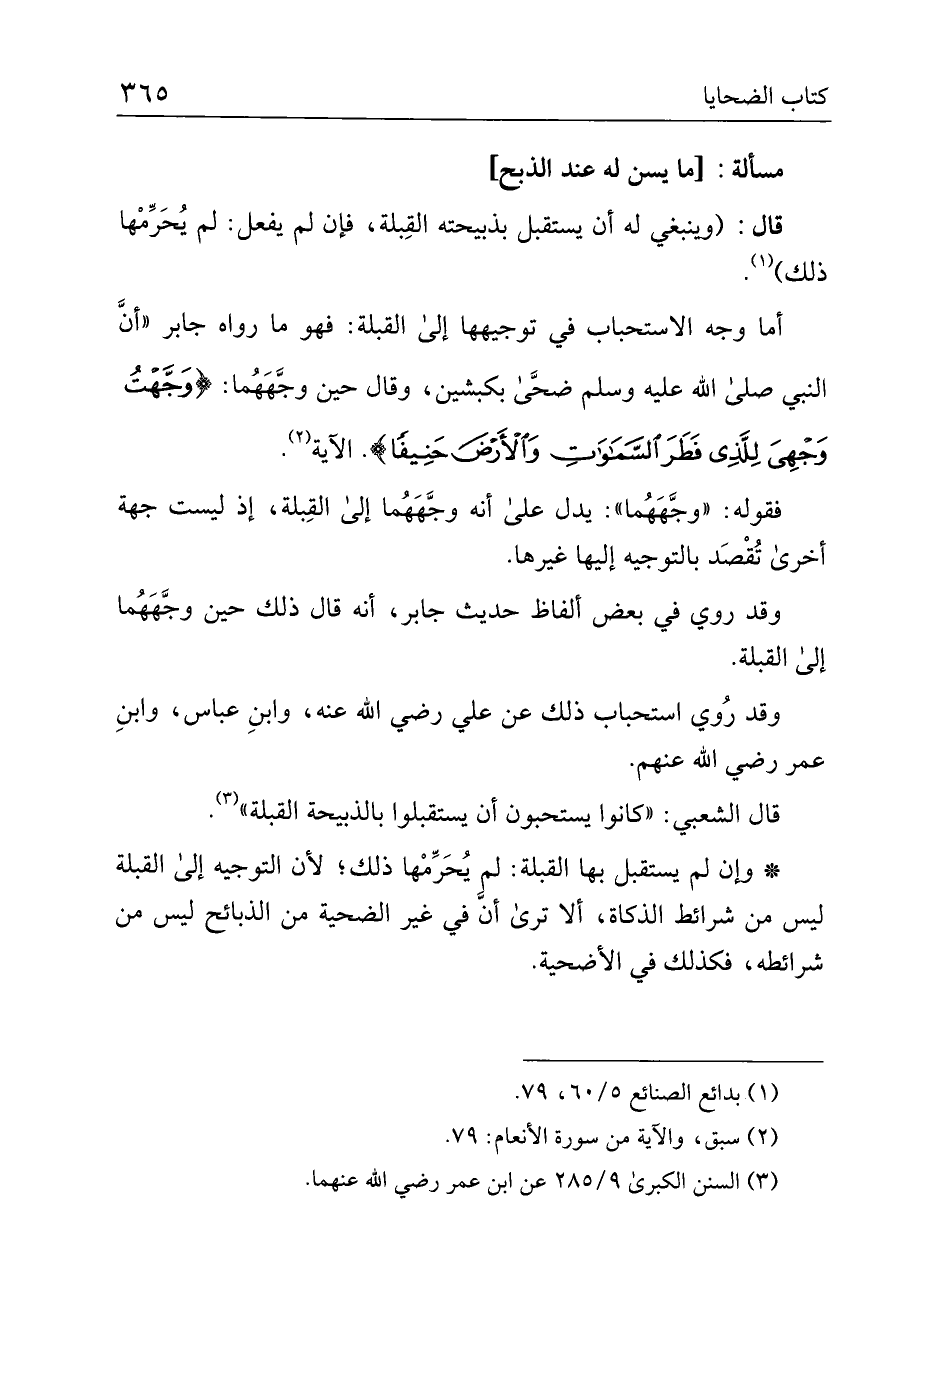 كتاب الضحايا ٣٦٥
مسألة : [ما يسن له عند الذبح]
قال : (وينبغي له أن يستقبل بذبيحته القِبلة، فإن لم يفعل: لم يُحَرِّمْها
ذلك)(١).
أما وجه الاستحباب في توجيهها إلىٰ القبلة: فهو ما رواه جابر «أنَّ
النبي صلىٰ الله عليه وسلم ضحَّىٰ بكبشين، وقال حين وجَّهَهُما: ﴿وَجَّهْتُ
وَجْهِىَ لِلَّذِى فَطَرَ ٱلسَّمَٰوَٰتِ وَٱلْأَرْضَ حَنِيفًا﴾. الآية(٢).
فقوله: «وجَّهَهُما»: يدل علىٰ أنه وجَّهَهُما إلىٰ القِبلة، إذ ليست جهة
أخرىٰ تُقْصَد بالتوجيه إليها غيرها.
وقد روي في بعض ألفاظ حديث جابر، أنه قال ذلك حين وجَّهَهُما
إلىٰ القبلة.
وقد رُوي استحباب ذلك عن علي رضي الله عنه، وابنِ عباس، وابنِ
عمر رضي الله عنهم.
قال الشعبي: «كانوا يستحبون أن يستقبلوا بالذبيحة القبلة»(٣).
* وإن لم يستقبل بها القبلة: لم يُحَرِّمْها ذلك؛ لأن التوجيه إلىٰ القبلة
ليس من شرائط الذكاة، ألا ترىٰ أنَّ في غير الضحية من الذبائح ليس من
شرائطه، فكذلك في الأضحية.
(١) بدائع الصنائع ٦٠/٥، ٧٩.
(٢) سبق، والآية من سورة الأنعام: ٧٩.
(٣) السنن الكبرىٰ ٢٨٥/٩ عن ابن عمر رضي الله عنهما.